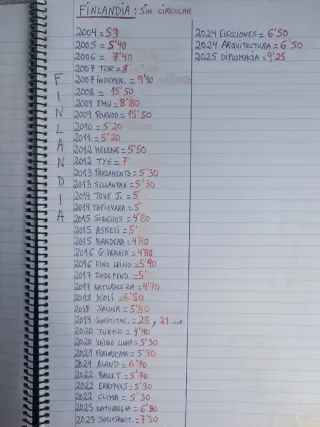 FINLANDIA: SIN CIRCULAR
FINLANDIA
2004 = 53
2005 = 5'40
2006 = 7'40
2007 TOR = 8'
2007 INDEPEN. = 9'40
2008 = 15'50
2009 EMU = 8'80
2009 PORVOO = 15'50
2010 = 5'20
2011 = 5'20
2012 HELENE = 5'50
2012 TYE = 7'
2013 PARLAMENTO = 5'30
2013 SILLANPAA = 5'30
2014 TOVE J. = 5'
2014 TAPIOVARA = 5'
2015 SIBELIUS = 4'80
2015 ASKELI = 5'
2015 BANDERA = 4'80
2016 G. = 4'80
2016 EINO LEINO = 5'90
2017 INDEPEND. = 5'
2017 NATURALEZA = 4'70
2018 KOLI = 6'50
2018 SAUNA = 5'80
2019 CONSTITUC. = 25, 21
2020 TURKU = 4'90
2020 VAINO LINNA = 5'30
2021 PERIODISMO = 5'30
2021 ALAND = 6'70
2022 BALLET = 5'70
2022 ERASMUS = 5'30
2022 CLIMA = 5'30
2023 NATURALEZA = 6'80
2023 SOCIOSANIT. = 7'50
2024 ELECCIONES = 6'50
2024 ARQUITECTURA = 6'50
2025 DIPLOMACIA = 9'25